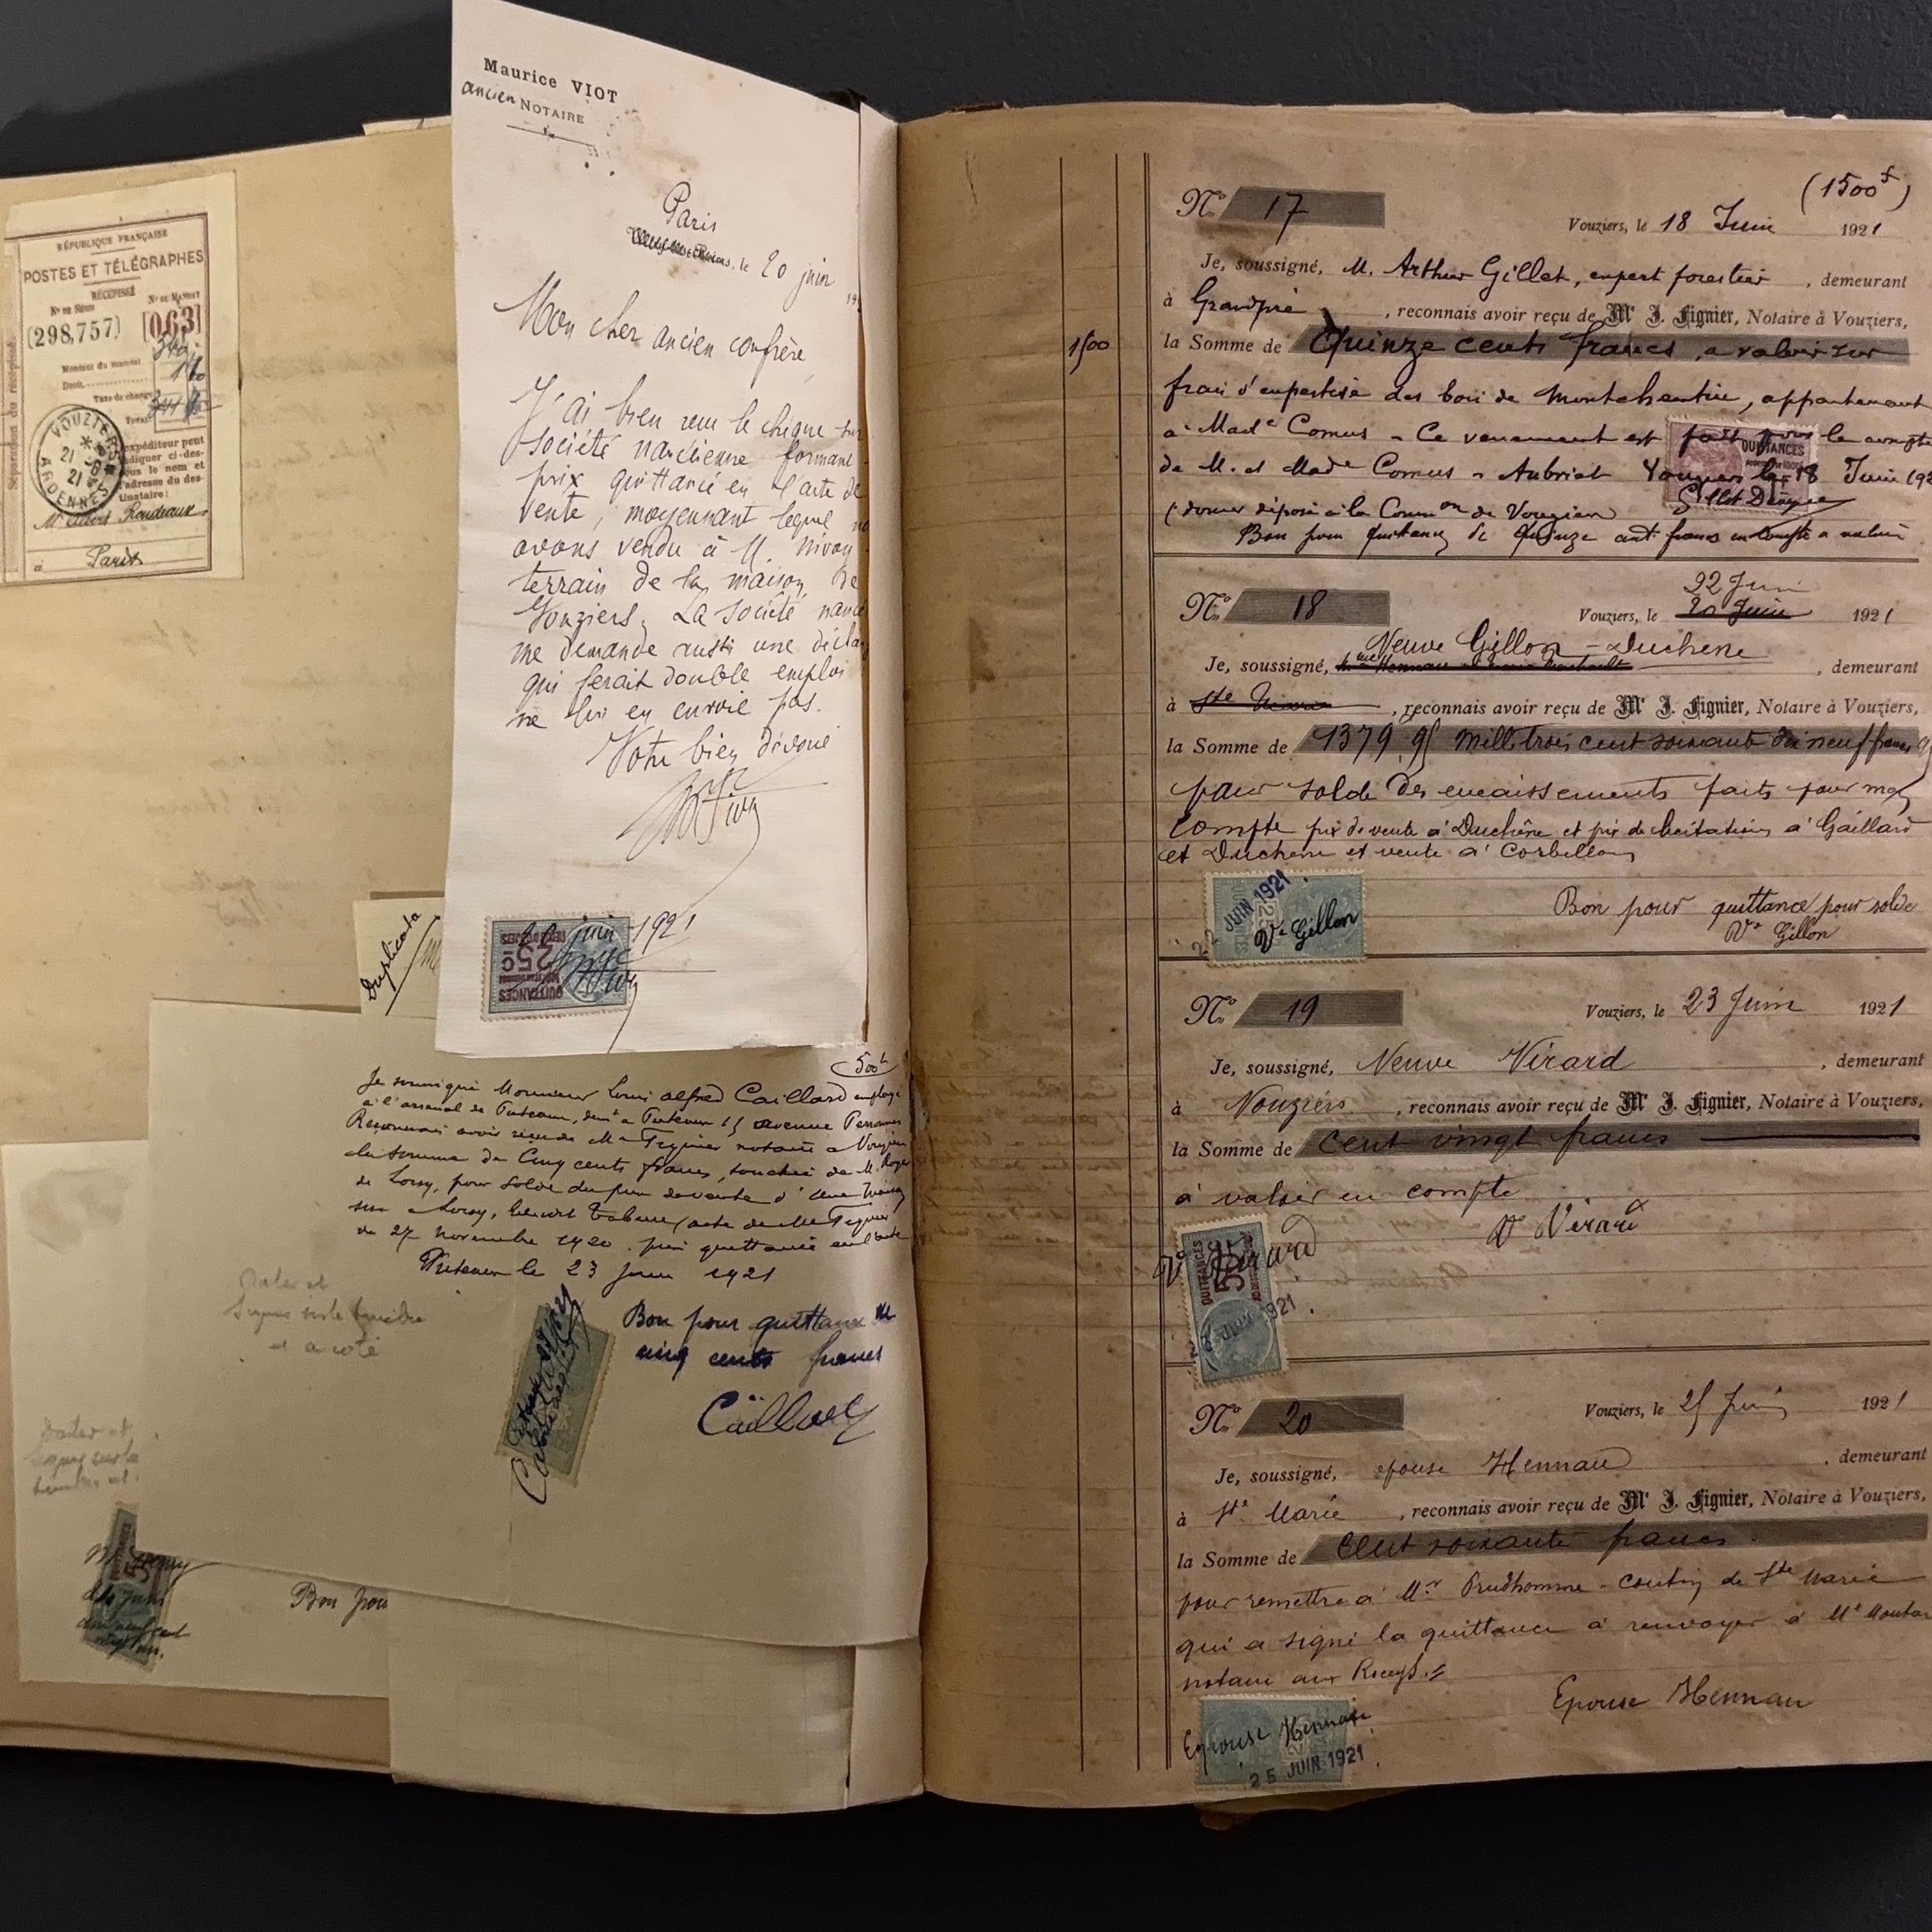 RÉPUBLIQUE FRANÇAISE
POSTES ET TÉLÉGRAPHES
RÉCÉPISSÉ
Nº DU MANDAT
(298,757) [063]
Montant du mandat
Droit
Taxe de
TOTAL
Séparation du récépissé
VOUZIERS
21 -6
21
ARDENNES
expéditeur peut
indiquer ci-des-
sous le nom et
l'adresse du des-
tinataire :
Mr Albert Rondeaux
à Paris
Maurice VIOT
ancien NOTAIRE
Paris
, le 20 juin 19
Mon cher ancien confrère
J'ai bien reçu le chèque sur
société nancéienne formant
prix quittancé en l'acte de
vente, moyennant lequel no
avons vendu à M. Nivoy
terrain de la maison de
Vouziers. La Société nancé
me demande aussi une déclar
qui ferait double emploi
ne lui en envoie pas.
Votre bien dévoué
20 juin 1921
QUITTANCES
25c
Duplicata
500f
Je soussigné Monsieur Louis Alfred Caillard employé
à l'arsenal de Puteaux, demt à Puteaux 15 avenue
Reconnais avoir reçu de Me Fignier notaire à Vouziers
la somme de Cinq cents francs, touchée de M. Roger
de Lorry, pour solde du prix de vente d'une maison
sise à Lorry, acte de Me Fignier
du 27 novembre 1920. prix quittancé
Puteaux le 23 juin 1921
Bon pour quittance de
cinq cents francs
Caillard
Dater et
Signer sur le timbre
et à côté
Dater et
signer sur le
timbre et
Bon pou
No 17
(1500f)
Vouziers, le 18 Juin 1921
Je, soussigné, M. Arthur Gillet, expert forestier, demeurant
à Grandpré, reconnais avoir reçu de Me J. Fignier, Notaire à Vouziers,
1500
la Somme de Quinze cents francs, a valoir sur
frais d'expertise des bois de Montchentin, appartenant
a Made Comus - Ce versement est fait pour le compte
de M. et Made Comus - Aubriot Vouziers le 18 Juin 192
QUITTANCES
(dossier déposé à la Common de Vouziers)
Bon pour quittance de Quinze cent francs en compte a valoir
No 18
22 Juin
Vouziers, le 20 Juin 1921
Veuve Gillon - Duchêne
Je, soussigné, , demeurant
à Ste Marie, reconnais avoir reçu de Me J. Fignier, Notaire à Vouziers,
la Somme de 1379,95 mille trois cent soixante dix neuf francs 95
pour solde des encaissements faits pour mon
compte prix de vente à Duchêne et prix de licitation à Gaillard
et Duchêne et vente à Corbillon
22 JUIN 1921
Ve Gillon
Bon pour quittance pour solde
Ve Gillon
No 19
Vouziers, le 23 Juin 1921
Je, soussigné, Veuve Vérard, demeurant
à Vouziers, reconnais avoir reçu de Me J. Fignier, Notaire à Vouziers,
la Somme de cent vingt francs
à valoir en compte
Ve Vérard
Ve Vérard
QUITTANCES
JUIN 1921
No 20
Vouziers, le 25 Juin 1921
Je, soussigné, épouse Hennau, demeurant
à Ste Marie, reconnais avoir reçu de Me J. Fignier, Notaire à Vouziers,
la Somme de Cent soixante francs
pour remettre à Mr Prudhomme-Coutin de Ste Marie
qui a signé la quittance à renvoyer à Me
notaire aux Riceys.
Epouse Hennau
Epouse Hennau
25 JUIN 1921